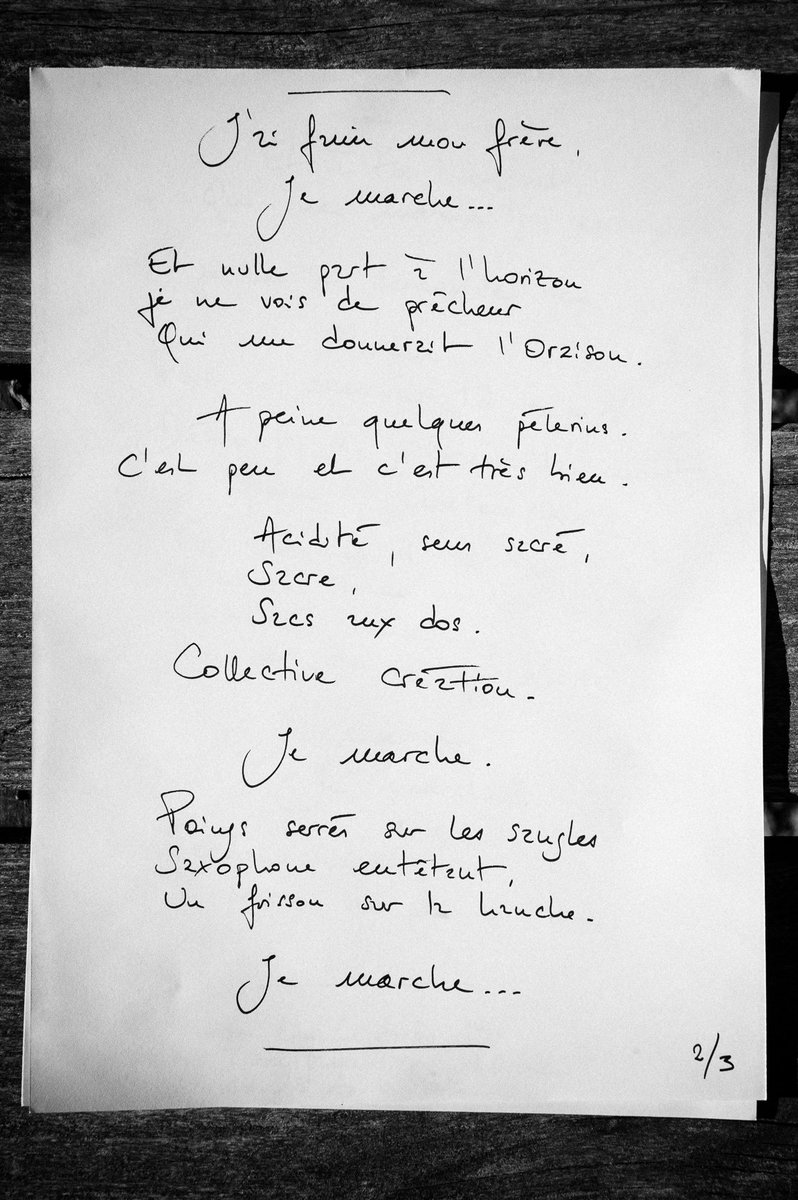 J'ai faim mon frère,
Je marche...
Et nulle part à l'horizon
je ne vois de prêcheur
Qui me donnerait l'Oraison.
A peine quelques pèlerins.
C'est peu et c'est très bien.
Acidité, sens sacré,
Sacre,
Sacs aux dos.
Collective création.
Je marche.
Poings serrés sur les sangles
Saxophone entêtant,
Un frisson sur la hanche.
Je marche...
2/3